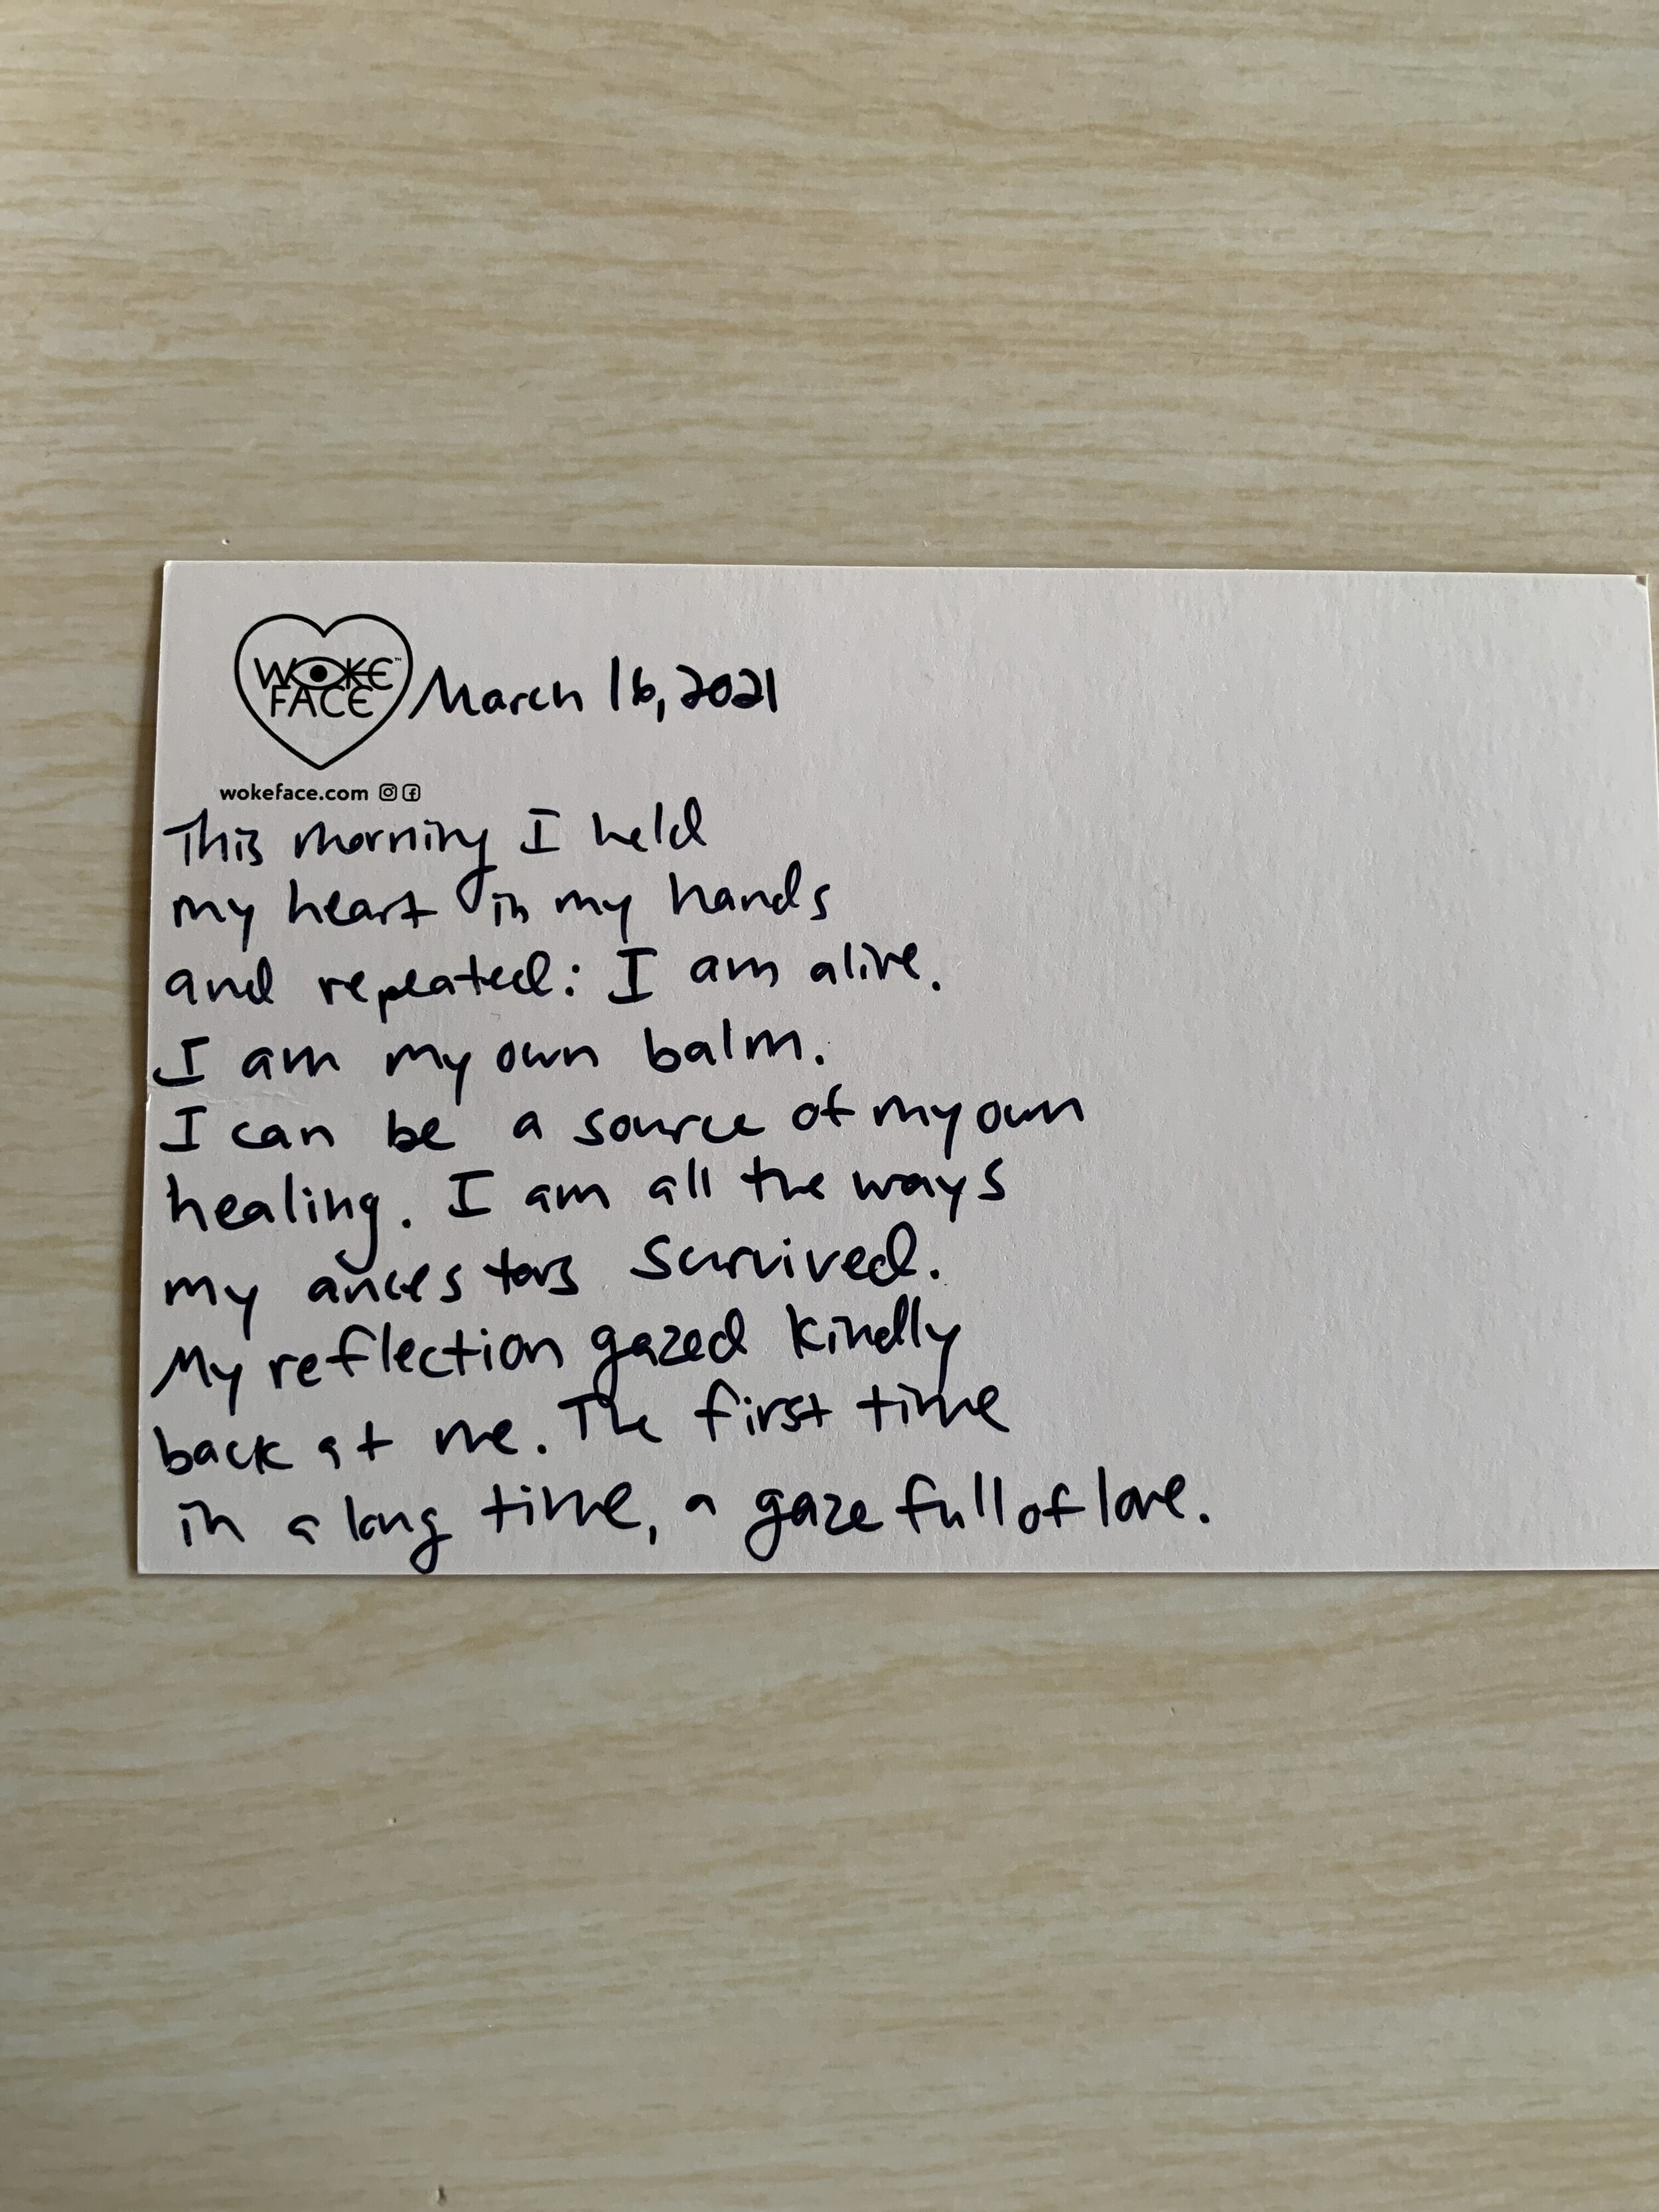 WOKE™
FACE
March 16, 2021
wokeface.com
This morning I held
my heart in my hands
and repeated: I am alive.
I am my own balm.
I can be a source of my own
healing. I am all the ways
my ancestors survived.
My reflection gazed kindly
back at me. The first time
in a long time, a gaze full of love.